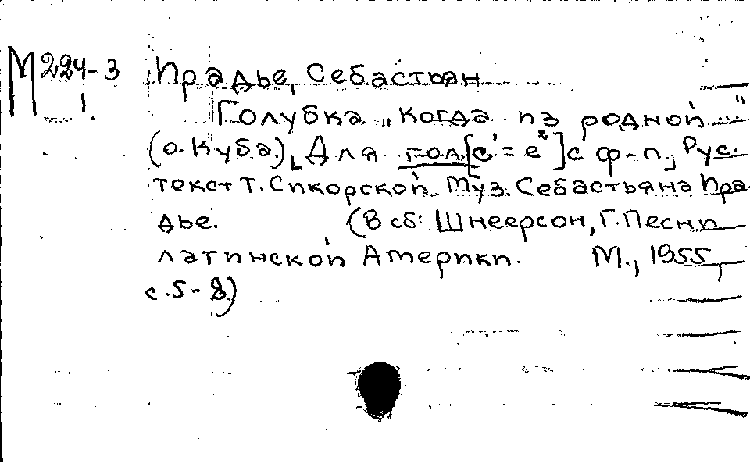 М 224-3 Ирадье, Себастьян
1. Голубка „Когда из родной..."
(о. Куба). Для гол. [c' = e²] с ф-п. Рус.
текст Т. Сикорской. Муз. Себастьяна Ира-
дье. (В сб: Шнеерсон, Г. Песни
латинской Америки. М., 1955,
с. 5-8)